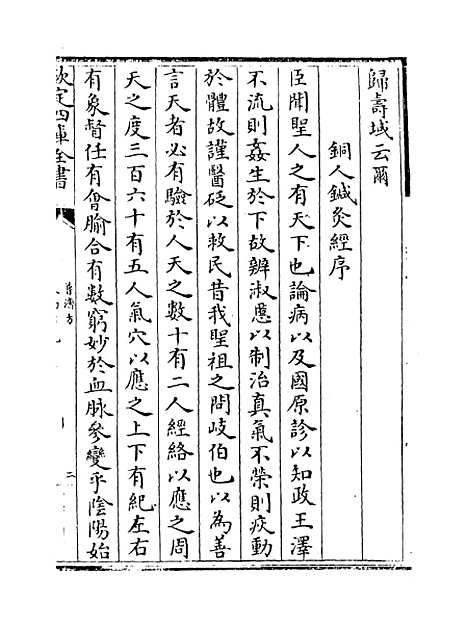 歸壽域云爾
銅人鍼灸經序
臣聞聖人之有天下也論病以及國原診以知政王澤
不流則姦生於下故辨淑慝以制治真氣不榮則疾動
於體故謹醫砭以救民昔我聖祖之問岐伯也以為善
言天者必有驗於人天之數十有二人經絡以應之周
天之度三百六十有五人氣穴以應之上下有紀左右
有象督任有會腧合有數窮妙於血脉參變乎陰陽始
欽定四庫全書
普濟方
二